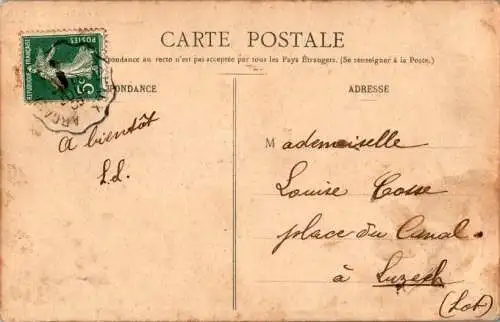 CARTE POSTALE
ondance au recto n'est pas acceptée par tous les Pays Étrangers. (Se renseigner à la Poste.)
PONDANCE
ADRESSE
REPUBLIQUE FRANÇAISE
POSTES
5c
A bientôt
L.L.
Mademoiselle
Louise Cosse
place du Canal
à Luzech
(Lot)